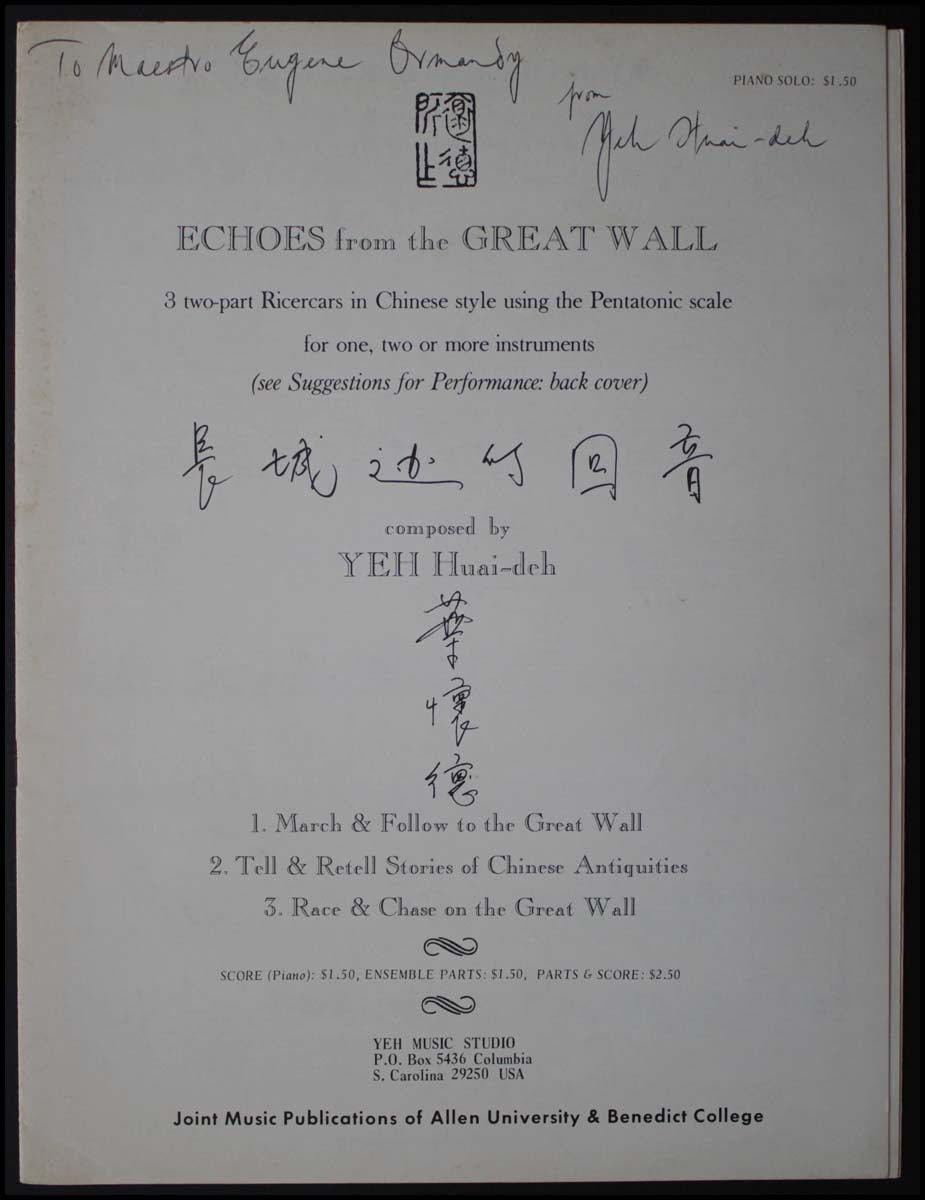 To Maestro Eugene Ormandy
PIANO SOLO: $1.50
from
Yeh Huai-deh
ECHOES from the GREAT WALL
3 two-part Ricercars in Chinese style using the Pentatonic scale
for one, two or more instruments
(see Suggestions for Performance: back cover)
長城边的回音
composed by
YEH Huai-deh
葉
懷
德
1. March & Follow to the Great Wall
2. Tell & Retell Stories of Chinese Antiquities
3. Race & Chase on the Great Wall
SCORE (Piano): $1.50, ENSEMBLE PARTS: $1.50, PARTS & SCORE: $2.50
YEH MUSIC STUDIO
P.O. Box 5436 Columbia
S. Carolina 29250 USA
Joint Music Publications of Allen University & Benedict College